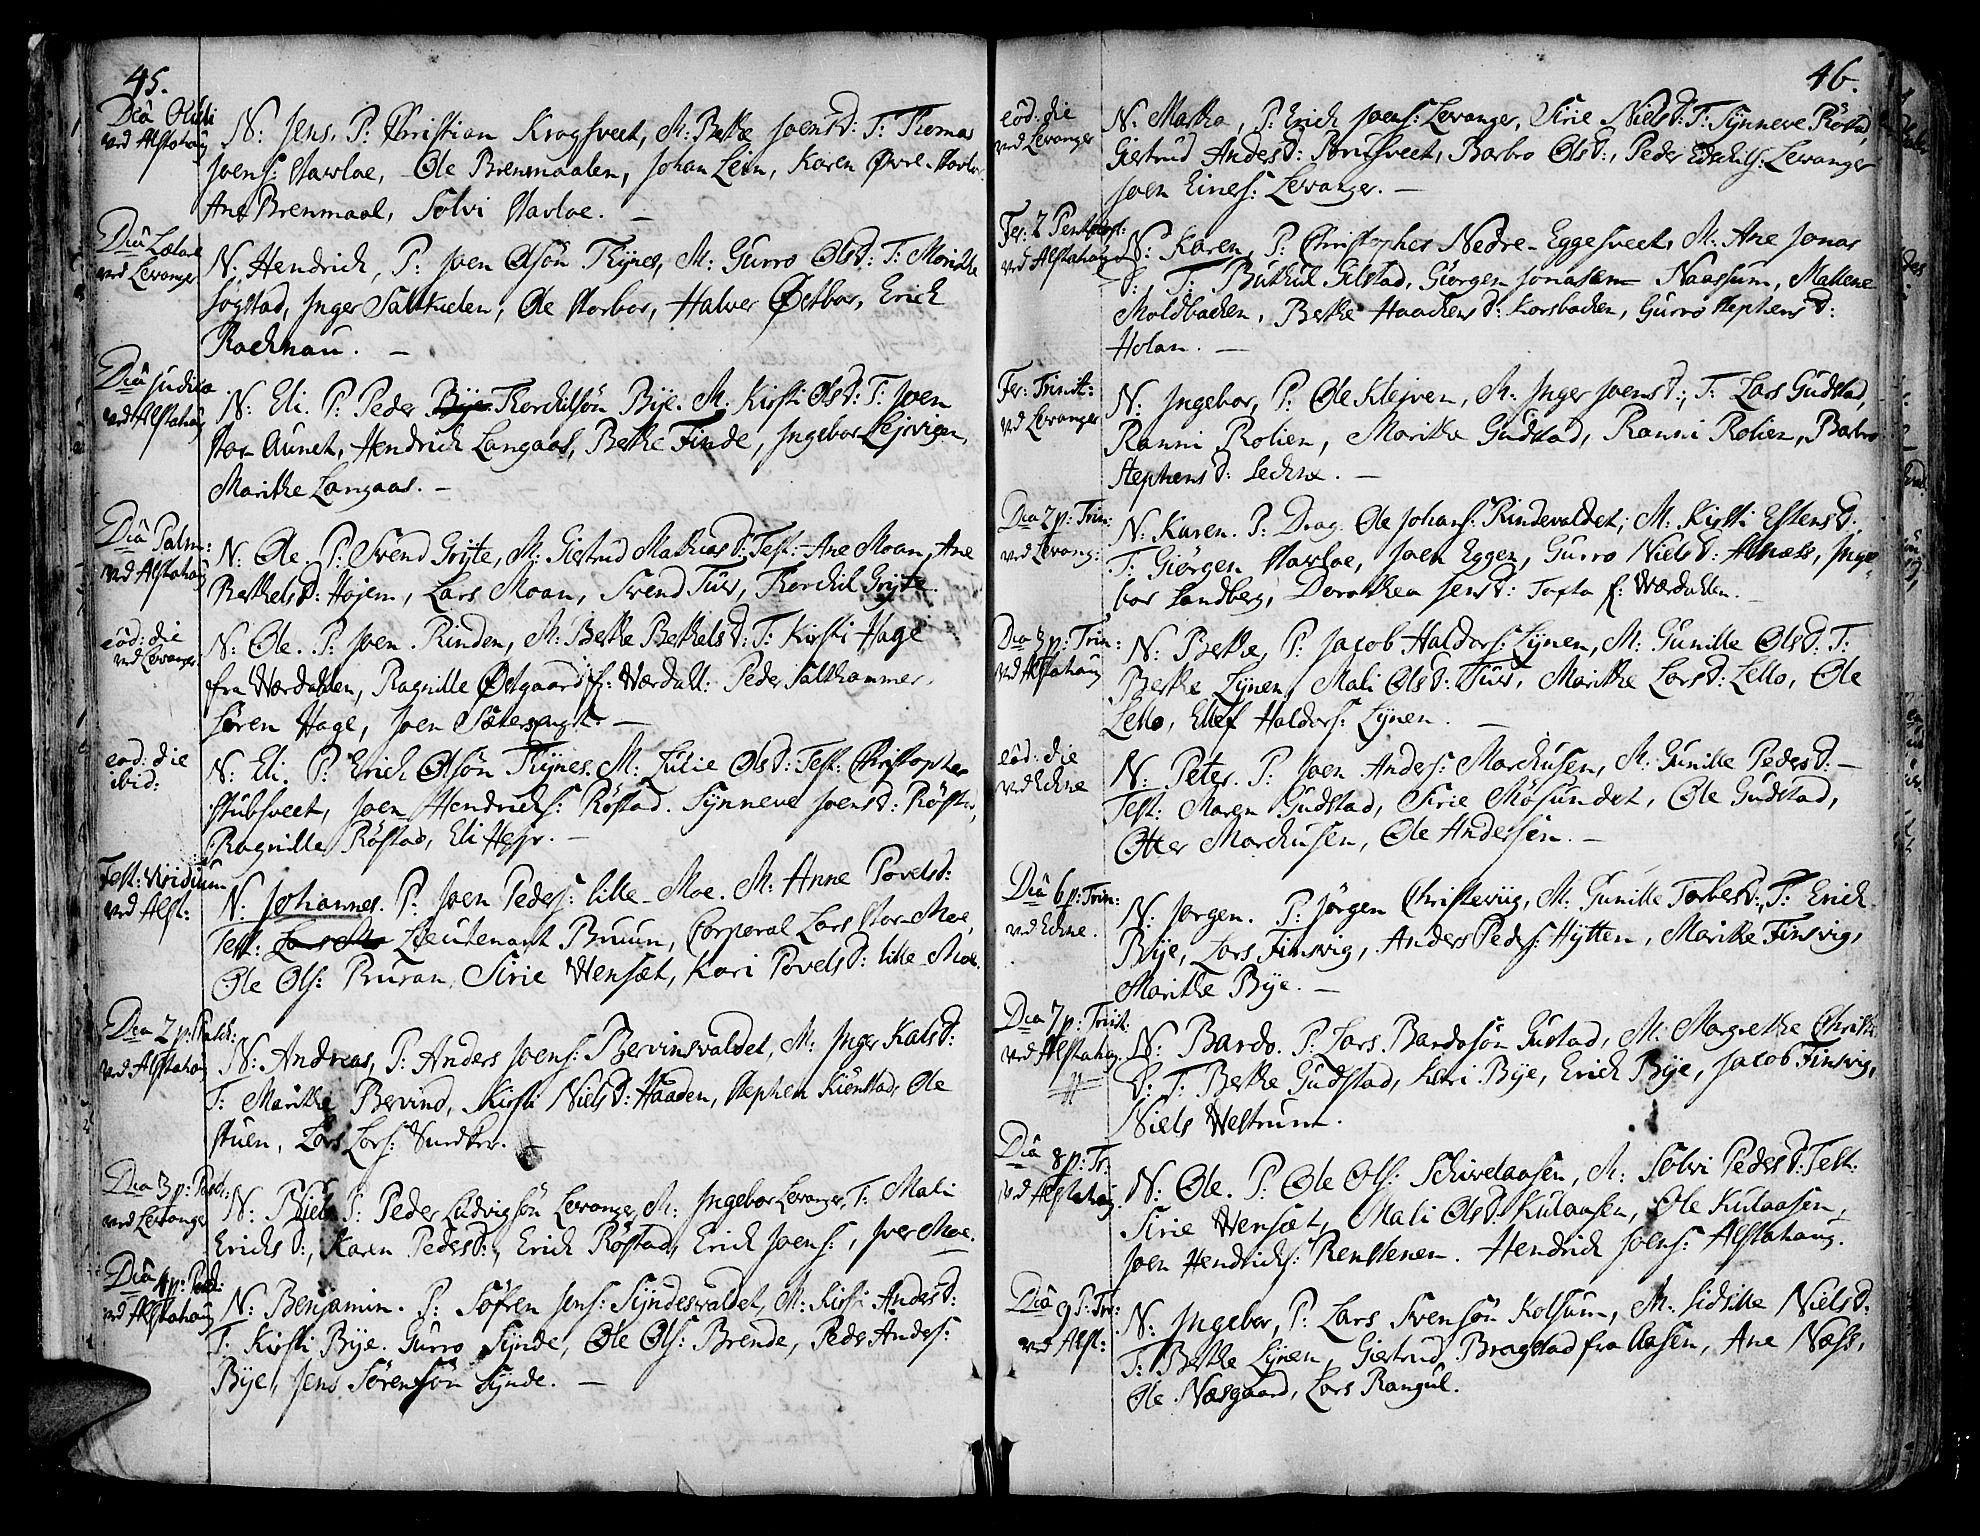 45.
Dca Oculi
ved Alstahaug
N: Jens. P: Christian Kragsveet, M: Bethe Joensd: T: Thomas
Joens: Stavloe, Ole Brenmaalen, Johan Lein, Karen Øvre-
Ane Brenmaal, Solvi Stavloe. —
Dca Lætare
ved Levanger
N: Hendrich, P: Joen Olsön Thÿnes, M: Gurro Olsd: T: Marithe
Sogstad, Inger Saltkielen, Ole Storbor, Halver Østbor, Erich
Rachnau. —
Dca Judica
ved Alstahaug
N: Eli. P: Peder Thorchilsön Bije. M: Kirsti Olsd: T: Joen
Stor Aunet, Hendrich Langaas, Bethe Finde, Ingebor Lejrvigen,
Marithe Langaas. —
Dca Palm:
ved Alstahaug
N: Ole. P: Svend Grÿte, M: Giertrud Mathiasd: Test: Ane Moan, Ane
Bethelsd: Hojem, Lars Moan, Svend Tuv, Thorchil Grÿte.
eod: die
ved Levanger
N: Ole. P: Joen Rinden, M: Bethe Bethelsd: T: Kirsti Hage
fra Værdahlen, Ragnille Østgaard f: Værdall: Peder Salthammer,
Sören Hage, Joen —
eod: die
ibid:
N: Eli. P: Erich Olsön Thÿnes. M: Zidsie Olsd: Test: Christopher
Stubsveet, Joen Hendrichs: Röstad. Synneve Joensd: Röstad,
Ragnille Röstad, Eli —
Fest: Viridium
ved Alst:
N: Johannes. P: Joen Peders: lille-Moe. M: Anne Povelsd:
Test: Lieutenant Bruun, Corporal Lars Stor-Moe,
Ole Ols: Pruran, Sirie Wensæt, Kari Povelsd: lille-Moe.
Dca 2 p: Pasch:
ved Alstahaug
N: Andreas, P: Anders Joens: Bervinsvaldet, M: Inger
T: Marithe Bervind, Kirsti Nielsd: Haaden, Stephen Kiönstad, Ole
Stuen, Lars Lars: —
Dca 3 p: Pasch:
ved Levanger
N: Niels P: Peder Ludvigsön Levanger, M: Ingebor Levanger, T: Mali
Erichsd:, Karen Pedersd:, Erich Röstad, Erich Joens:, Iver Moe.
Dca 4 p: Pasch:
ved Alstahaug
N: Benjamin. P: Söfren Jens: Sÿndesvaldet, M: Kirsti Andersd:
T: Kirsti Bije. Gurro Sÿnde, Ole Ols: Brende, Peder Anders:
Bije, Jens Sörensön Sÿnde. —
46.
eod: die
ved Levanger
N: Martha, P: Erich Joens: Levanger, Sirie Nielsd: T: Sÿnneve Röstad,
Giertrud Andersd: Brusveet, Barbro Olsd:, Peder Levanger
Joen Einers: Levanger. —
Fer: 2 Pentecost:
ved Alstahaug
N: Karen, P: Christopher Nedre-Eggesveet, M: Ane Jonas
D: T: Buthil Gilstad, Giörgen Jonassen Naassum, Malene
Moldbacken, Bethe Haachensd: Korsbacken, Gurro Stephensd:
Holan. —
Fer: Trinit:
ved Levanger
N: Ingebor, P: Ole Klejven, M: Inger Joensd:, T: Lars Gudstad,
Ranni Rolien, Marithe Gudstad, Ranni Rolien, Barbro
Stephensd: —
Dca 2 p: Trin:
ved Levang:
N: Karen. P: Drag. Ole Johans: Rindevaldet, M: Kirsti Estensd:
T: Giörgen Stavloe, Joen Eggen, Gurro Nielsd: Alnæss, Inge-
bor Sandberg, Dorothea Jensd: Tofta f: Værdahlen. —
Dca 3 p: Trin:
ved Alstahaug
N: Bethe, P: Jacob Haldors: Lÿnen, M: Gunille Olsd: T:
Berthe Lÿnen, Mali Olsd: Tuv, Marithe Larsd: Lello, Ole
Lello, Ellef Haldors: Lÿnen. —
eod: die
ved Echne
N: Peter. P: Joen Anders: Marchusen, M: Gunille Pedersd: —
Test: Maren Gudstad, Sirie Mösundet, Ole Gudstad,
Otter Marchusen, Ole Andersen. —
Dca 6 p: Trin:
ved Echne.
N: Jorgen. P: Jörgen Christeviig, M: Gunille Torbersd:, T: Erich
Bije, Lars Finsvig, Anders Peders: Hÿtten, Marithe Finsvig,
Marithe Bije. —
Dca 7 p: Trinit:
ved Alstahaug
N: Bardo. P: Lars Bardosön Gustad, M: Margrethe Christ:
D: T: Berthe Gudstad, Kari Bije, Erich Bije, Jacob Finsvig,
Niels Westrum.
Dca 8 p: Tr:
ved Alstahaug.
N: Ole. P: Ole Ols: Schivelaasen, M: Solvi Pedersd: Test:
Sirie Wensæt, Mali Olsd: Kulaasen, Ole Kulaasen,
Joen Hendrichs: Renstenen. Hendrich Joens: Alstahaug.
Dca 9 p: Tr:
ved Alst:
N: Ingebor, P: Lars Svensön Kolsum, M: Sidsille Nielsd:
T: Berthe Lÿnen, Giertrud Bragstad fra Aasen, Ane Næss,
Ole Næsgaard, Lars Rangul.